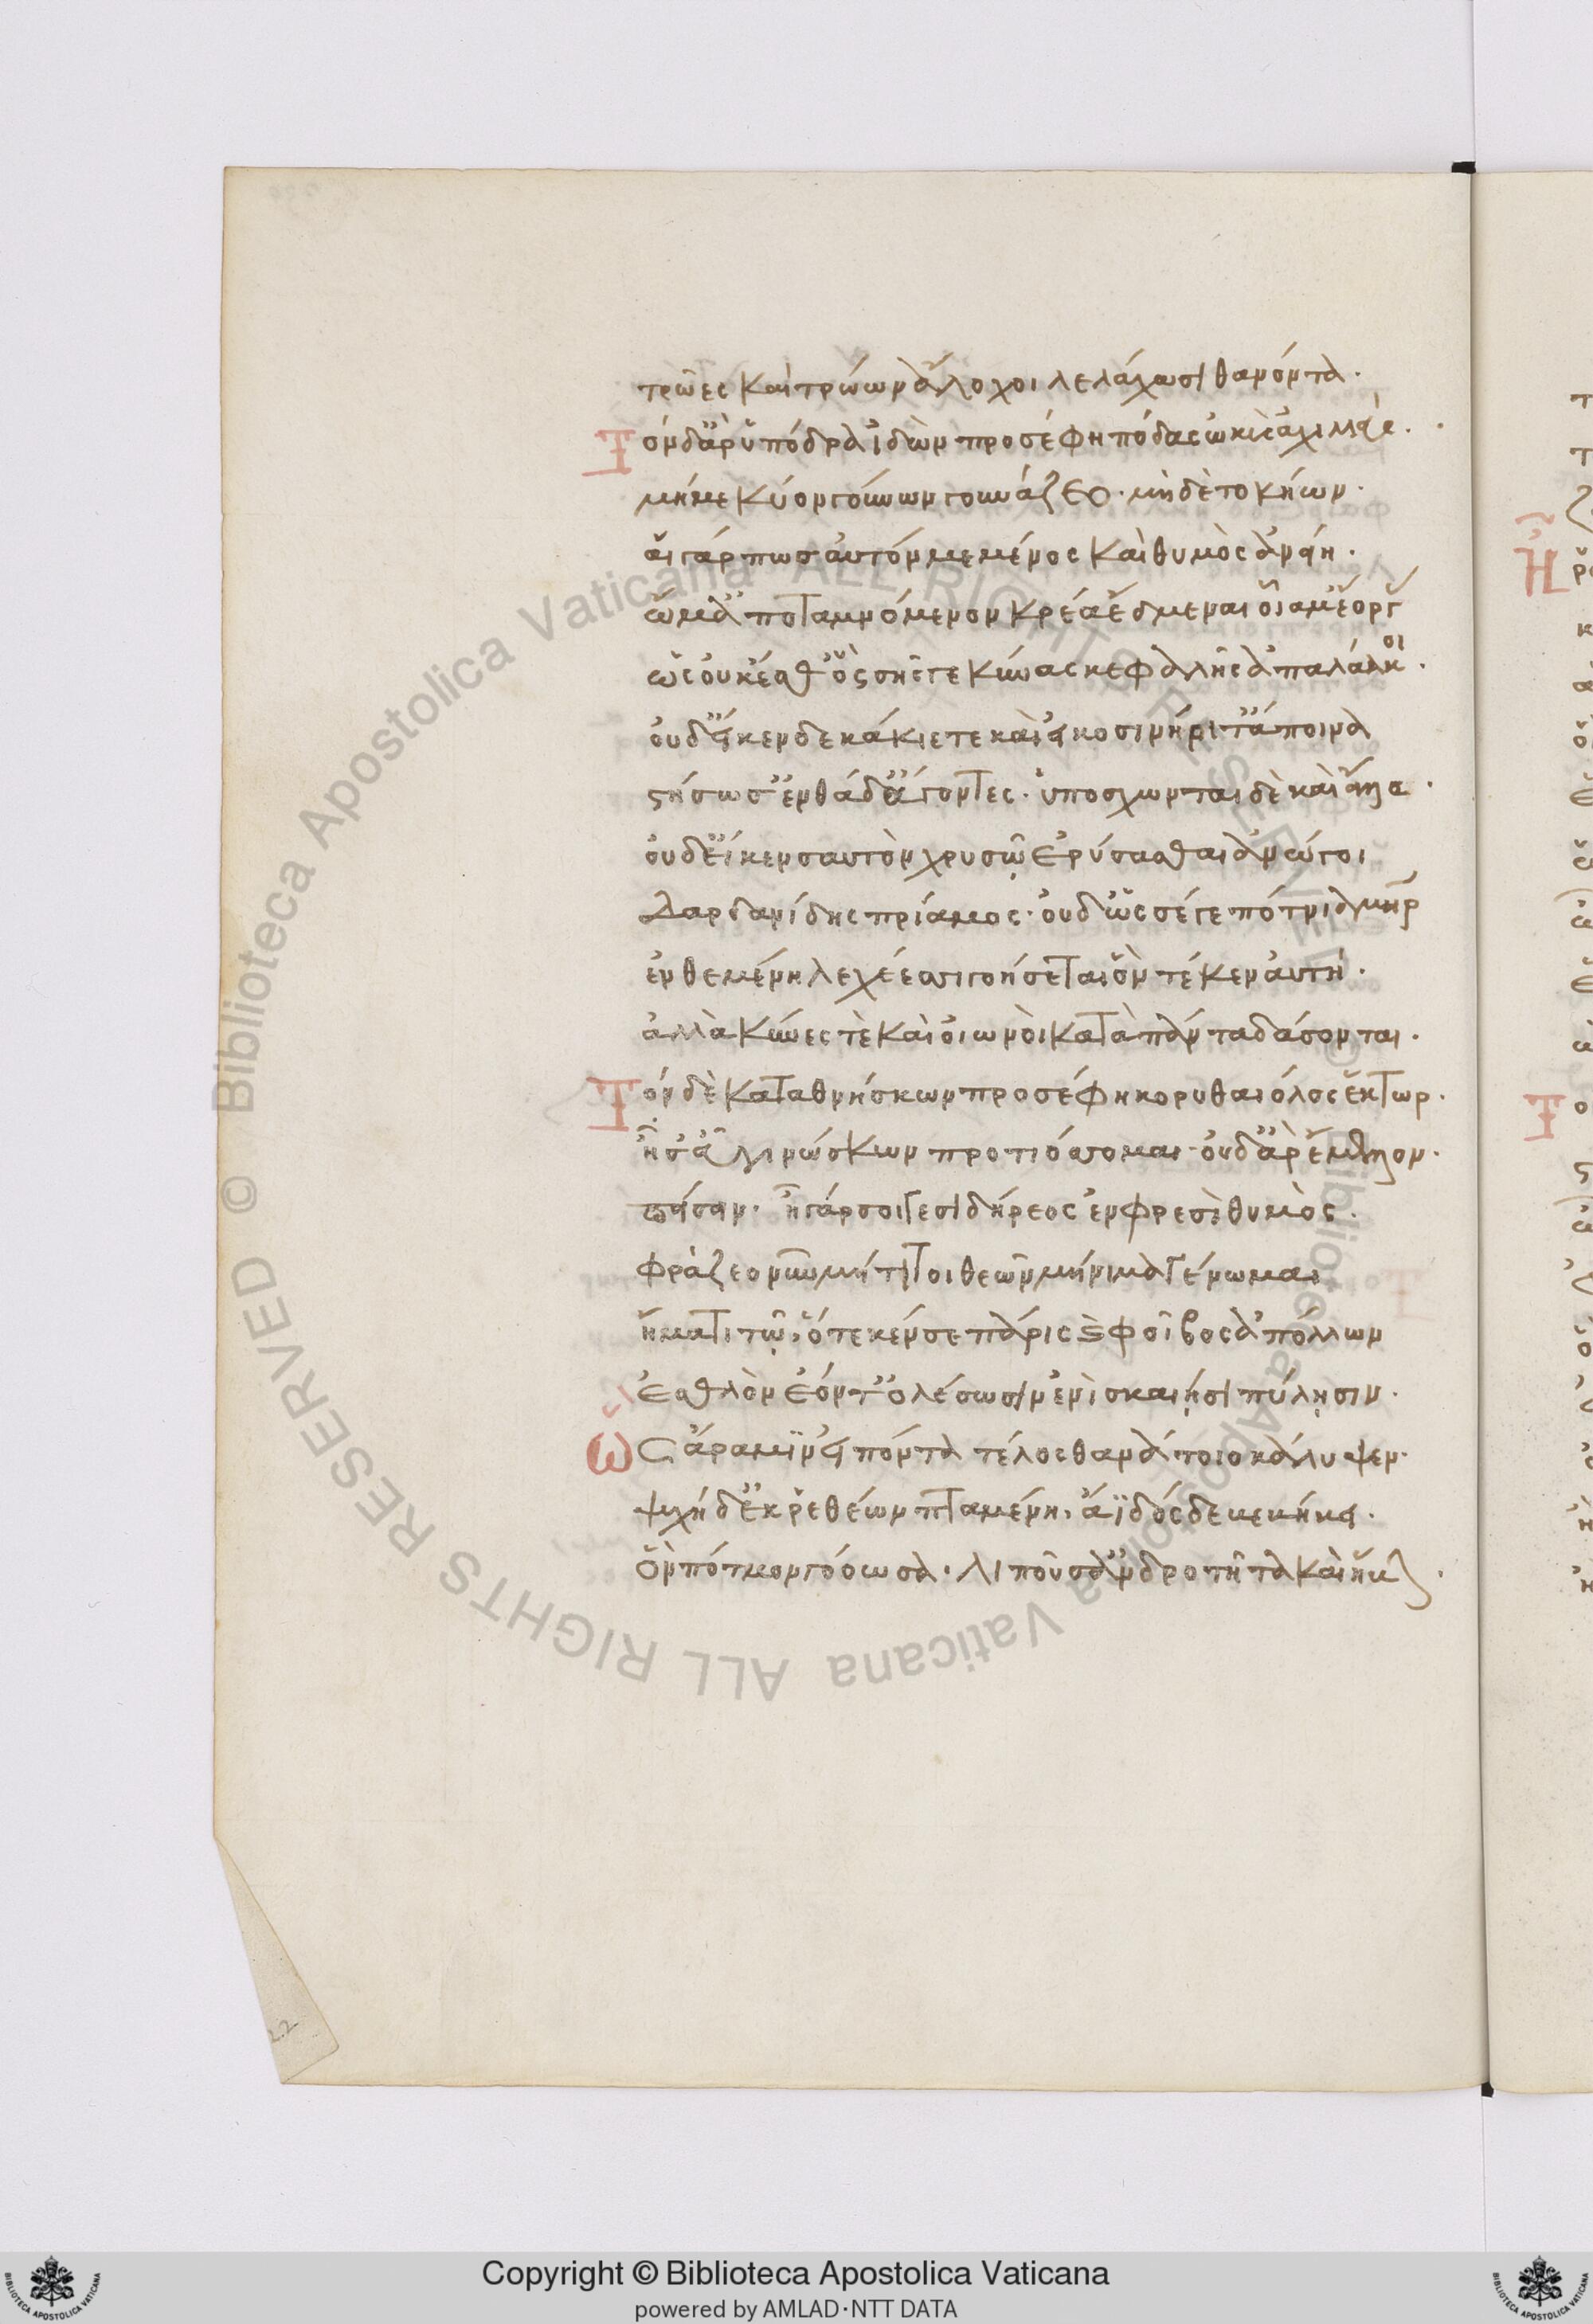 τρῶες καὶ τρώων ἄλοχοι λελάχωσι θανόντα.
Τὸν δ' ἄρ' ὑπόδρα ἰδὼν προσέφη πόδας ὠκὺς ἀχιλλεύς.
μή με κύον γούνων γουνάζεο. μὴ δὲ τοκήων.
αἲ γάρ πως αὐτόν με μένος καὶ θυμὸς ἀνείη.
ὤμ' ἀποταμνόμενον κρέα ἔδμεναι οἷά μ' ἔοργας
ὡς οὐκ ἔσθ' ὃς σῆς γε κύνας κεφαλῆς ἀπαλάλκοι.
οὐδ' εἴ κεν δεκάκις τε καὶ εἰκοσινήριτ' ἄποινα
στήσωσ' ἐνθάδ' ἄγοντες. ὑπόσχωνται δὲ καὶ ἄλλα.
οὐδ' εἴ κέν σ' αὐτὸν χρυσῷ ἐρύσασθαι ἀνώγοι
Δαρδανίδης πρίαμος. οὐδ' ὣς σέ γε πότνια μήτηρ
ἐνθεμένη λεχέεσσι γοήσεται ὃν τέκεν αὐτή.
ἀλλὰ κύνες τὲ καὶ οἰωνοὶ κατὰ πάντα δάσονται.
Τὸν δὲ καταθνήσκων προσέφη κορυθαιόλος ἕκτωρ.
ἦ σ' εὖ γινώσκων προτιόσσομαι. οὐδ' ἄρ' ἔμελλον.
πείσειν. ἦ γάρ σοί γε σιδήρεος ἐν φρεσὶ θυμὸς.
φράζεο νῦν μή τί τοι θεῶν μήνιμα γένωμαι
ἤματι τῷ, ὅτε κέν σε πάρις καὶ φοῖβος ἀπόλλων
ἐσθλὸν ἐόντ' ὀλέσωσιν ἐνὶ σκαιῇσι πύλῃσιν.
Ὣς ἄρα μιν εἰπόντα τέλος θανάτοιο κάλυψεν.
ψυχὴ δ' ἐκ ῥεθέων πταμένη, ἄϊδόςδε βεβήκει.
ὃν πότμον γοόωσα. λιποῦσ' ἀνδροτῆτα καὶ ἥβην.
22
Copyright © Biblioteca Apostolica Vaticana
powered by AMLAD·NTT DATA
© Biblioteca Apostolica Vaticana ALL RIGHTS RESERVED
© Biblioteca Apostolica Vaticana ALL RIGHTS RESERVED